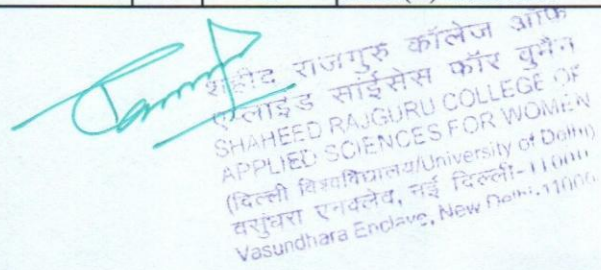 शहीद राजगुरु कॉलेज ऑफ
एप्लाइड साईसेस फॉर वुमैन
SHAHEED RAJGURU COLLEGE OF
APPLIED SCIENCES FOR WOMEN
(दिल्ली विश्वविद्यालय/University of Delhi)
वसुंधरा एनक्लेव, नई दिल्ली-11
Vasundhara Enclave, New Delhi-11